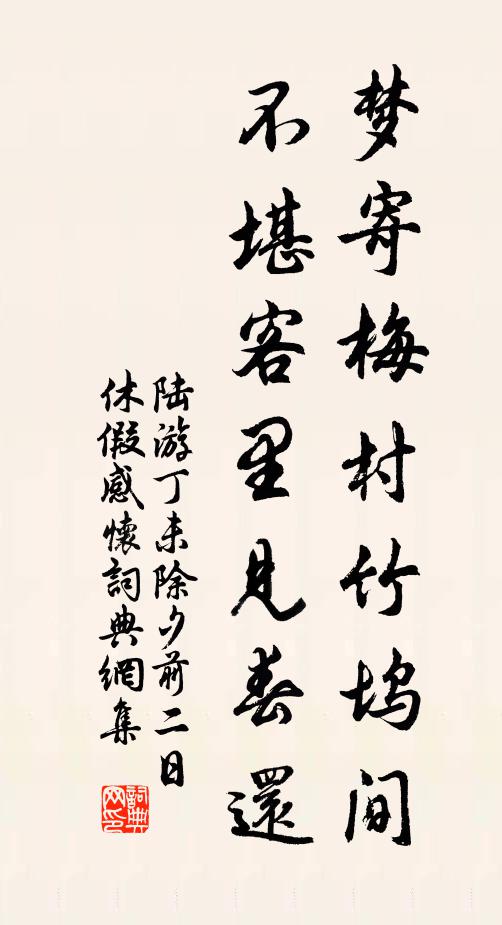 梦寄梅村竹坞间
不堪客里见春还
陆游丁未除夕前二日
休假感懷詞典網集
詞典网印